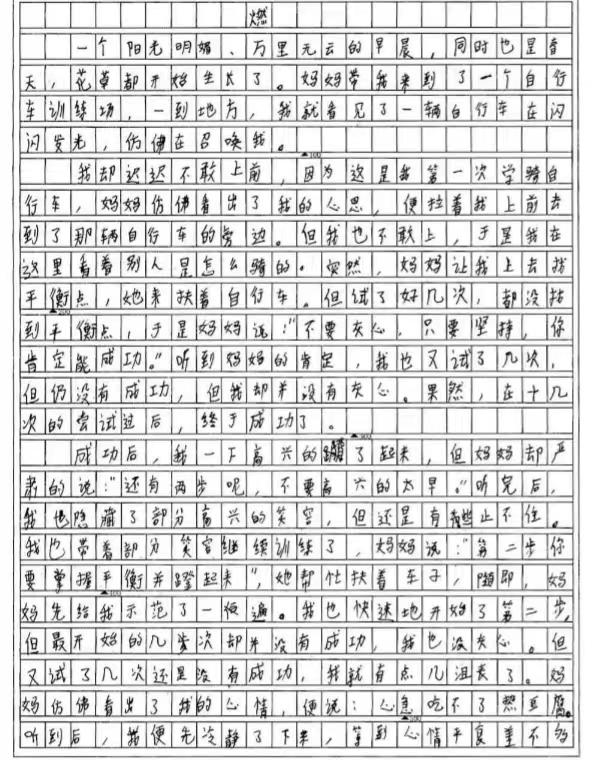 燃
一个阳光明媚、万里无云的早晨，同时也是春
天，花草都开始生长了。妈妈带我来到了一个自行
车训练场，一到地方，我就看见了一辆自行车在闪
闪发光，仿佛在召唤我。
▲100
我却迟迟不敢上前，因为这是我第一次学骑自
行车，妈妈仿佛看出了我的心思，便拉着我上前去
到了那辆自行车的旁边。但我也不敢上，于是我在
这里看着别人是怎么骑的。突然，妈妈让我上去找
平衡点，她来扶着自行车。但试了好几次，都没找
▲200
到平衡点，于是妈妈说：“不要灰心，只要坚持，你
肯定能成功。”听到妈妈的肯定，我也又试了几次，
但仍没有成功，但我却并没有灰心。果然，在十几
次的尝试过后，终于成功了。
▲300
成功后，我一下高兴的蹦了起来，但妈妈却严
肃的说：“还有两步呢，不要高兴的太早。”听完后，
我也隐藏了部分高兴的笑容，但还是有些止不住。
我也带着部分笑容继续训练了，妈妈说：“第二步你
要掌握平衡并蹬起来”，她帮忙扶着车子，随即，妈
▲400
妈先给我示范了一遍。我也快速地开始了第二步，
但最开始的几次却并没有成功，我也没灰心。但
又试了几次还是没有成功，我就有点儿沮丧了。妈
妈仿佛看出了我的心情，便说：心急吃不了热豆腐。
▲500
听到后，我便先冷静了下来，等到心情平复差不多